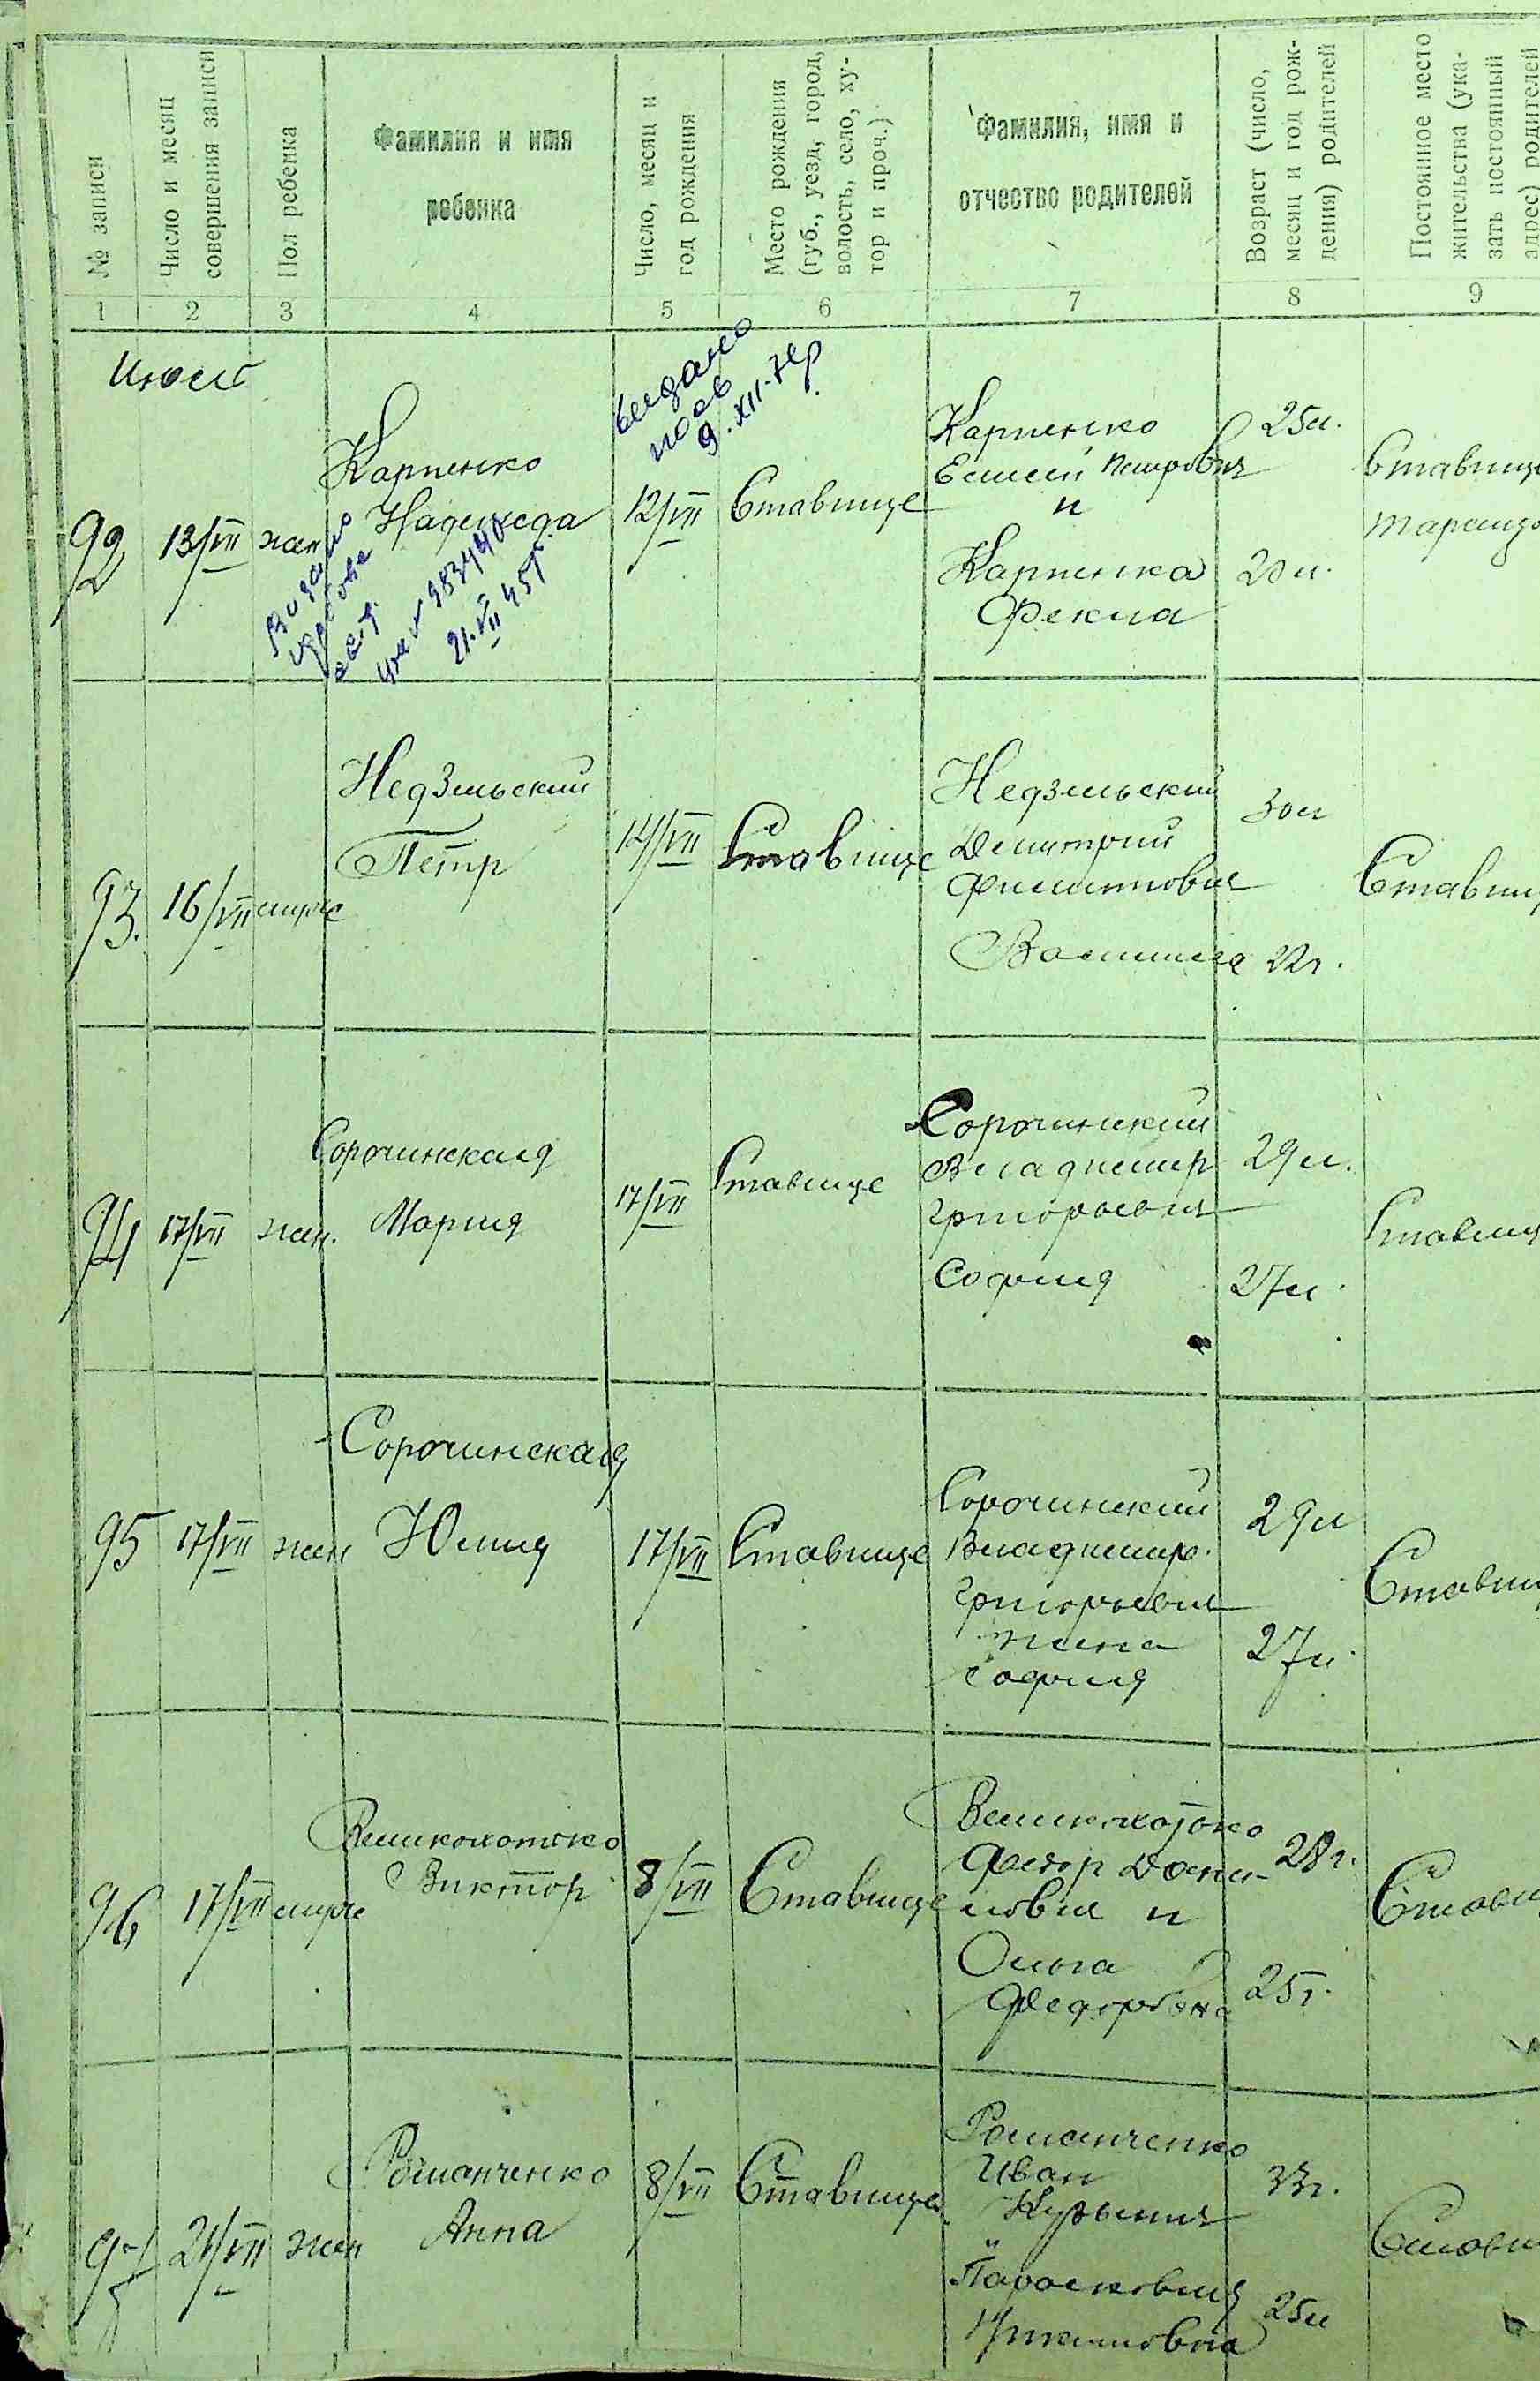 № записи
Число и месяц
совершения записи
Пол ребенка
Фамилия и имя
ребенка
Число, месяц и
год рождения
Место рождения
(губ., уезд, город,
волость, село, ху-
тор и проч.)
Фамилия, имя и
отчество родителей
Возраст (число,
месяц и год рож-
дения) родителей
Постоянное место
жительства (ука-
зать постоянный
адрес) родителей
1 2 3 4 5 6 7 8 9
Июль
92
13/VII
жен
Карпенко
Надежда
Видано
свід.
21.VII 45 р.
видано
пов
9.XII.
12/VII
Ставище
Карпенко
Петрович
и
Карпенка
Фекла
25 л.
20 л.
Ставище
93.
16/VII
муж
Недзельский
Петр
14/VII
Ставище
Недзельский
Дмитрий
Филиппович
30 л
22 г.
Ставищ
94
17/VII
жен.
Сорочинская
Мария
17/VII
Ставище
Сорочинский
Владимир
Григорьевич
София
29 л.
27 л.
Ставищ
95
17/VII
жен
Сорочинская
Юлия
17/VII
Ставище
Сорочинский
Владимир.
Григорьевич
жена
София
29 л
27 л.
Ставищ
96
17/VII
муж
Виктор
8/VII
Ставище
Федор Дани-
лович и
Ольга
Федоровна
28 г.
25 г.
Стави
97
21/VII
жен
Романченко
Анна
8/VII
Ставище
Романченко
Иван
Кузьмич
и
Парасковия
33 г.
25 л
Стави